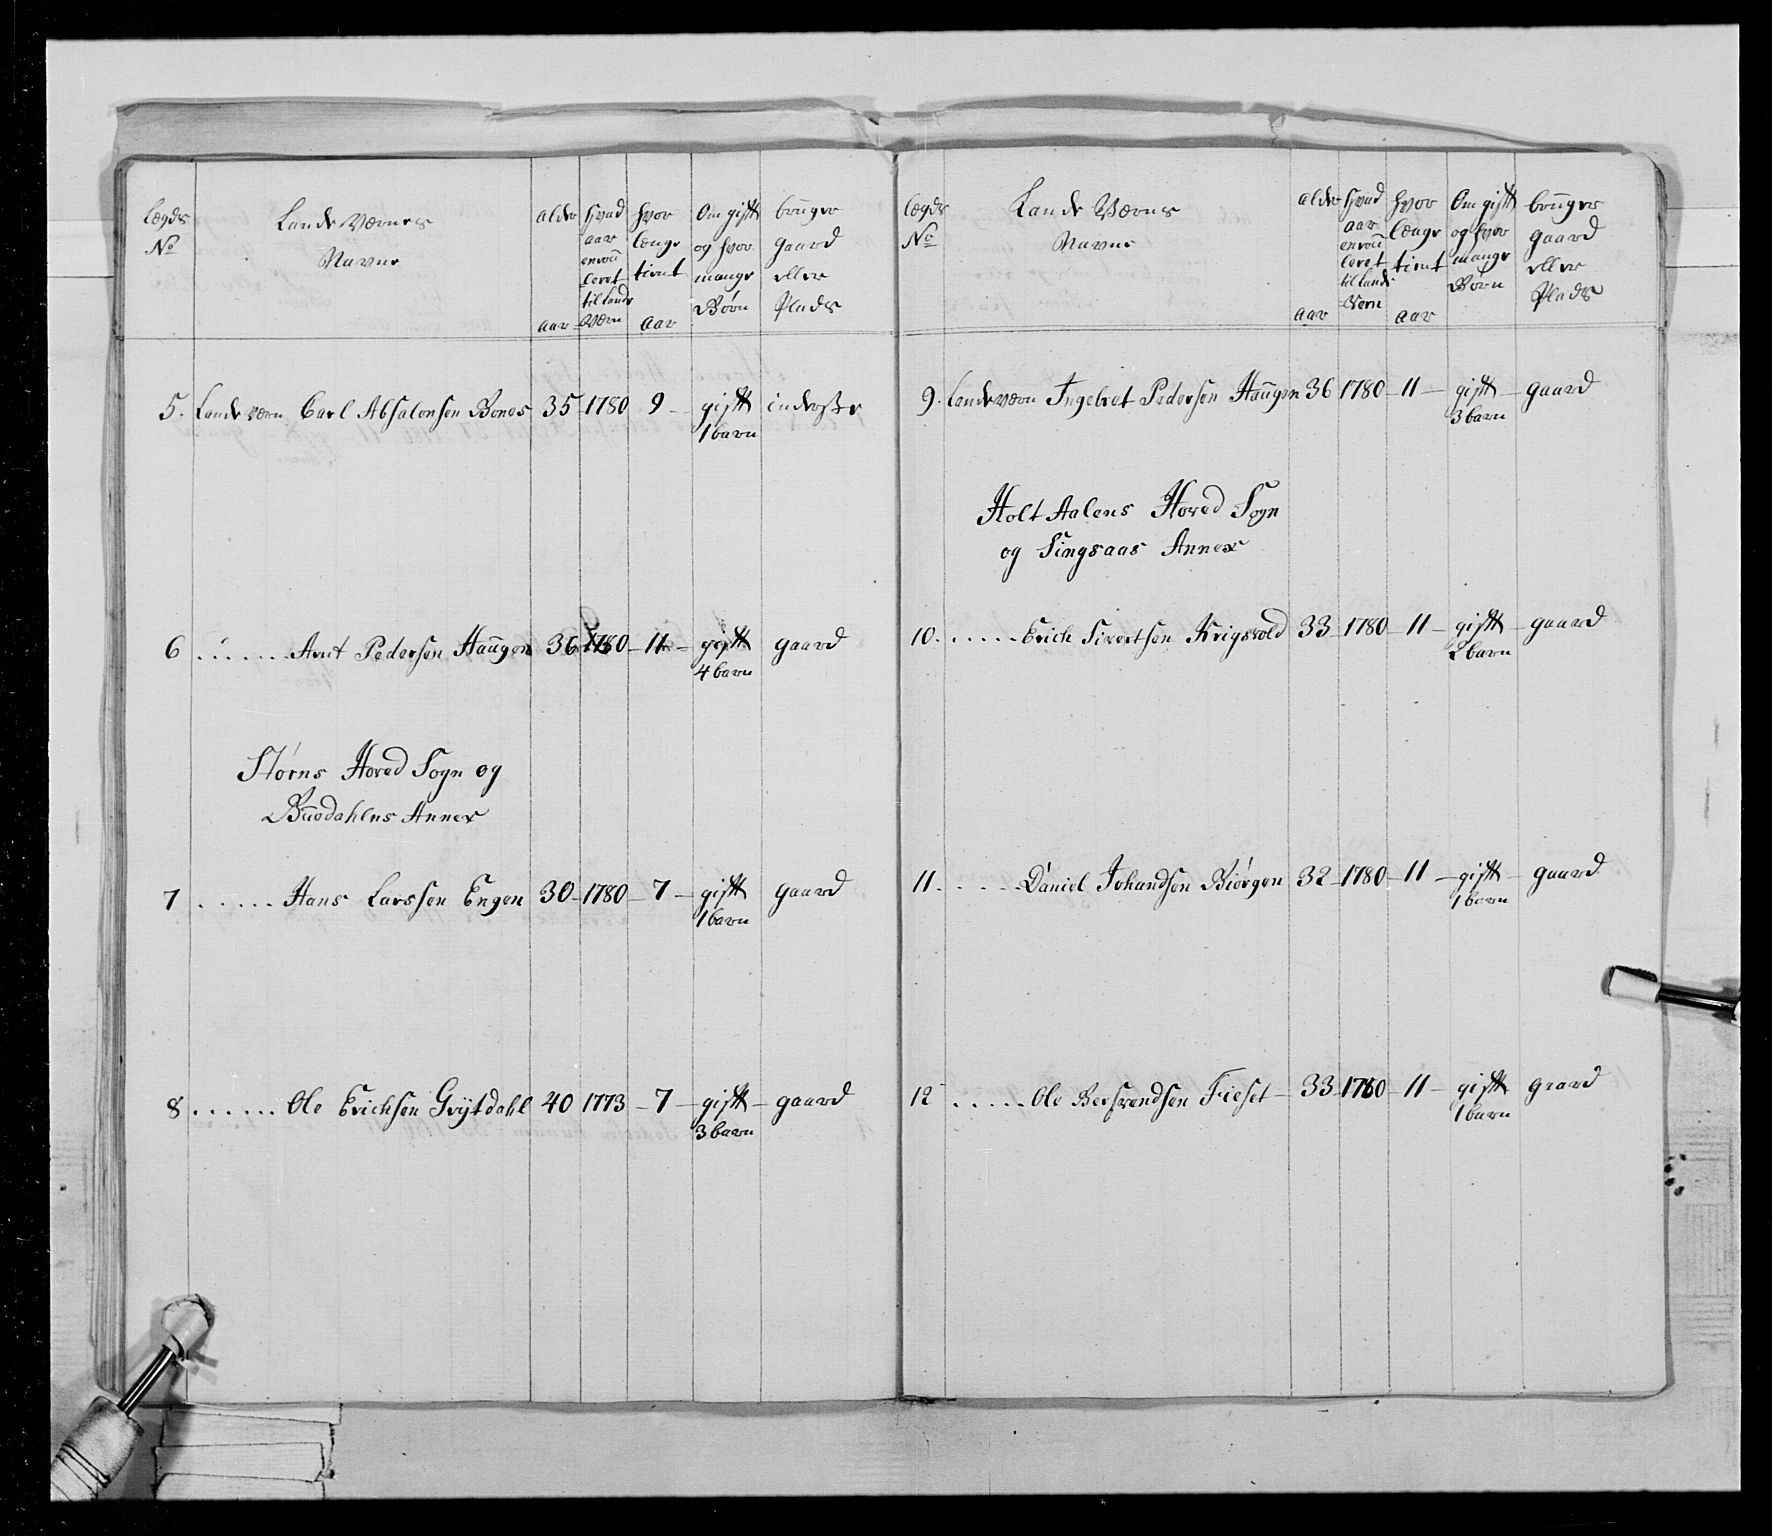 Lægds No | Lande Værnes Navne | alder aar | hvad aar enroulleret til Lands Værn | hvor længe tient aar | Om gift og hvor mange Børn | bruger gaard eller Plads
5. Lande værn Carl Absalonsen Bones 35 - 1780 9 - gift inderste
1 barn
6 ...... Arnt Pedersen Haugen 36 1780 - 11 - gift gaard
4 barn
Størns Hoved Sogn og
Budahlens Annex
7 ..... Hans Larssen Engen 30 - 1780 - 7 - gift gaard
1 barn
8 ...... Ole Erichsen Grytdahl 40 1773 - 7 - gift - gaard
3 barn
Lægds No | Lande Værns Navne | alder aar | hvad aar enroulleret til Lands Vern | hvor længe tient aar | Om gift og hvor mange Børn | bruger gaard eller Plads
9. Lande værn Ingebret Pedersen Haugen 36 1780 - 11 - gift - gaard
3 barn
Holt Aalens Hoved Sogn
og Singsaas Annex
10. ..... Erich Sivertsen Krigsvold 33 - 1780 - 11 - gift - gaard
2 barn
11. ..... Daniel Johandsen Biørgen 32 - 1780 - 11 - gift - gaard
1 barn
12 ..... Ole Bersvendsen Fieset - 33 - 1780 - 11 - gift gaard
1 barn